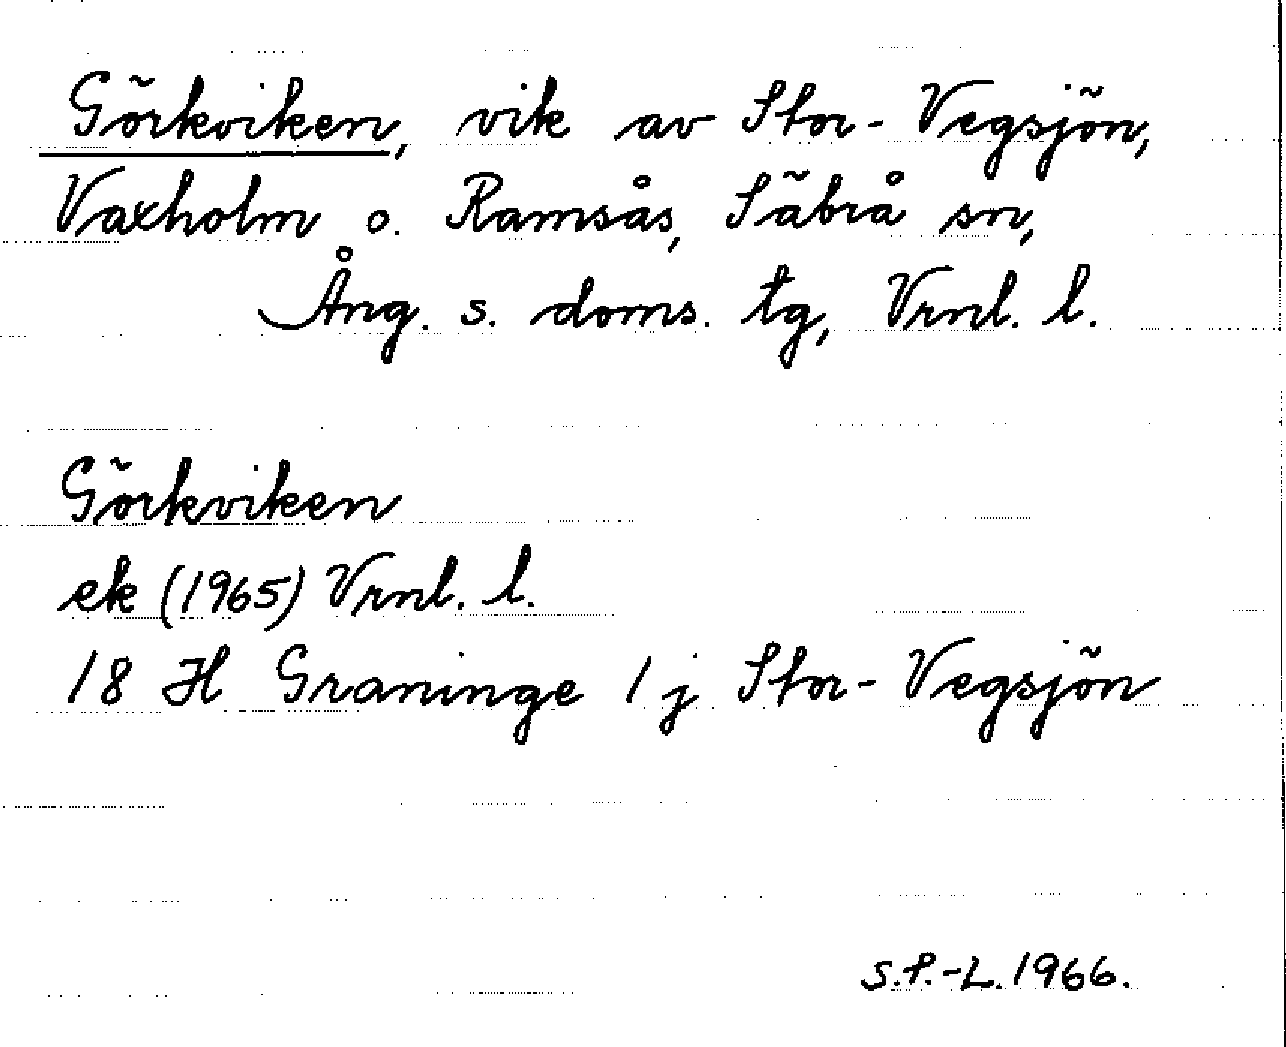 Görkviken, vik av Stor-Vegsjön,
Vaxholm o. Ramsås, Säbrå sn,
Ång. s. doms. tg, Vrnl. l.
Görkviken
ek (1965) Vrnl. l.
18 H Graninge 1 j Stor-Vegsjön
S.P.-L. 1966.